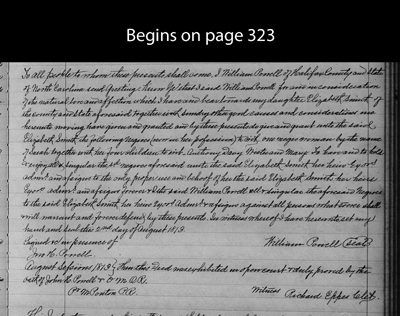 Begins on page 323
To all people to whom these presents shall come. I William Powell of Halifax County and State
of North Carolina send Greeting: know ye that I said William Powell for and in consideration
of the natural love and affection which I have and bear towards my daughter Elizabeth Smith of
the county and State aforesaid together with sundry other good causes and considerations me
hereunto moving have given and granted and by these presents do give and grant unto the said
Elizabeth Smith the following negroes (now in her possession) to wit, one negro woman by the name
of Sarah together with her children to wit, Anthony Davy and Mary To have and to hold
all & singular the negroes aforesaid unto the said Elizabeth Smith her heirs Exrs
admrs and assigns to the only proper use and behoof of her the said Elizabeth Smith her heirs
Exors admrs and assigns forever & I the said William Powell all & singular the aforesaid Negroes
to the said Elizabeth Smith her heirs Exors Admrs & assigns against all persons whatsoever shall
& will warrant and forever defend by these presents. In witness whereof I have hereunto set my
hand and seal this 2nd day of August 1813.
Signed in presence of William Powell (Seal)
Jno. H. Powell
August Sessions 1813 } Then this Deed was exhibited in open court & duly proved by the
oath of John H. Powell & O.M.D.R.
Witness Richard Eppes Clk.